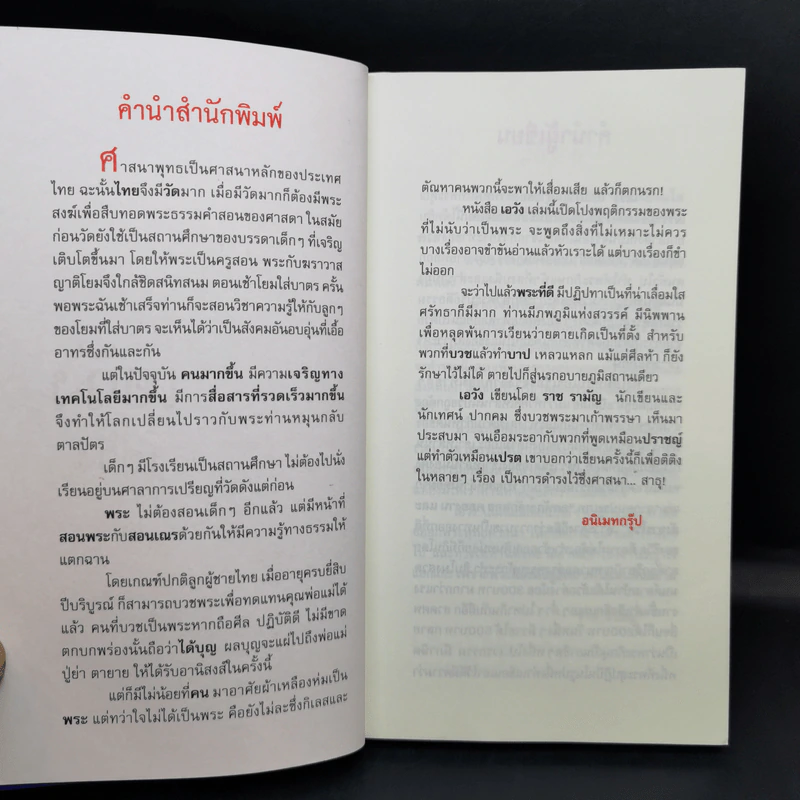 คำนำสำนักพิมพ์
ศาสนาพุทธเป็นศาสนาหลักของประเทศ
ไทย ฉะนั้นไทยจึงมีวัดมาก เมื่อมีวัดมากก็ต้องมีพระ
สงฆ์เพื่อสืบทอดพระธรรมคำสอนของศาสดา ในสมัย
ก่อนวัดยังใช้เป็นสถานศึกษาของบรรดาเด็กๆ ที่เจริญ
เติบโตขึ้นมา โดยให้พระเป็นครูสอน พระกับฆราวาส
ญาติโยมจึงใกล้ชิดสนิทสนม ตอนเช้าโยมใส่บาตร ครั้น
พอพระฉันเช้าเสร็จท่านก็จะสอนวิชาความรู้ให้กับลูกๆ
ของโยมที่ใส่บาตร จะเห็นได้ว่าเป็นสังคมอันอบอุ่นที่เอื้อ
อาทรซึ่งกันและกัน
แต่ในปัจจุบัน คนมากขึ้น มีความเจริญทาง
เทคโนโลยีมากขึ้น มีการสื่อสารที่รวดเร็วมากขึ้น
จึงทำให้โลกเปลี่ยนไปราวกับพระท่านหมุนกลับ
ตาลปัตร
เด็กๆ มีโรงเรียนเป็นสถานศึกษา ไม่ต้องไปนั่ง
เรียนอยู่บนศาลาการเปรียญที่วัดดังแต่ก่อน
พระ ไม่ต้องสอนเด็กๆ อีกแล้ว แต่มีหน้าที่
สอนพระกับสอนเณรด้วยกันให้มีความรู้ทางธรรมให้
แตกฉาน
โดยเกณฑ์ปกติลูกผู้ชายไทย เมื่ออายุครบยี่สิบ
ปีบริบูรณ์ ก็สามารถบวชพระเพื่อทดแทนคุณพ่อแม่ได้
แล้ว คนที่บวชเป็นพระหากถือศีล ปฏิบัติดี ไม่มีขาด
ตกบกพร่องนั้นถือว่าได้บุญ ผลบุญจะแผ่ไปถึงพ่อแม่
ปู่ย่า ตายาย ให้ได้รับอานิสงส์ในครั้งนี้
แต่ก็มีไม่น้อยที่คน มาอาศัยผ้าเหลืองห่มเป็น
พระ แต่ทว่าใจไม่ได้เป็นพระ คือยังไม่ละซึ่งกิเลสและ
ตัณหาคนพวกนี้จะพาให้เสื่อมเสีย แล้วก็ตกนรก!
หนังสือ เอวัง เล่มนี้เปิดโปงพฤติกรรมของพระ
ที่ไม่นับว่าเป็นพระ จะพูดถึงสิ่งที่ไม่เหมาะไม่ควร
บางเรื่องอาจขำขันอ่านแล้วหัวเราะได้ แต่บางเรื่องก็ขำ
ไม่ออก
จะว่าไปแล้วพระที่ดี มีปฏิปทาเป็นที่น่าเลื่อมใส
ศรัทธาก็มีมาก ท่านมีภพภูมิแห่งสวรรค์ มีนิพพาน
เพื่อหลุดพ้นการเวียนว่ายตายเกิดเป็นที่ตั้ง สำหรับ
พวกที่บวชแล้วทำบาป เหลวแหลก แม้แต่ศีลห้า ก็ยัง
รักษาไว้ไม่ได้ ตายไปก็สู่นรกอบายภูมิสถานเดียว
เอวัง เขียนโดย ราช รามัญ นักเขียนและ
นักเทศน์ ปากคม ซึ่งบวชพระมาเก้าพรรษา เห็นมา
ประสบมา จนเอือมระอากับพวกที่พูดเหมือนปราชญ์
แต่ทำตัวเหมือนเปรต เขาบอกว่าเขียนครั้งนี้ก็เพื่อติติง
ในหลายๆ เรื่อง เป็นการดำรงไว้ซึ่งศาสนา... สาธุ!
อนิเมทกรุ๊ป